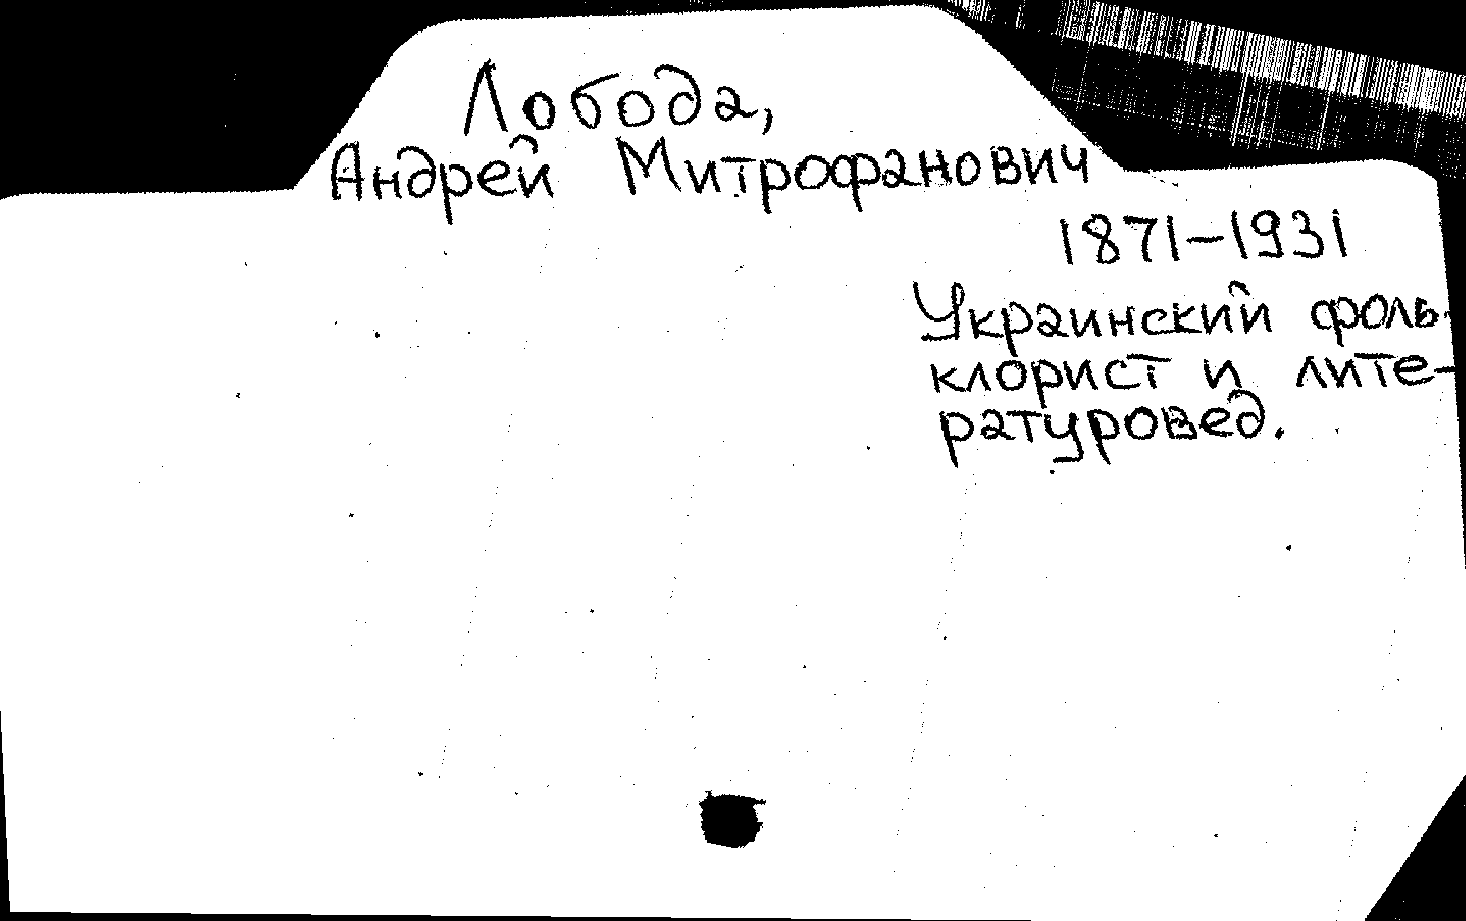 Лобода,
Андрей Митрофанович
1871-1931
Украинский фоль-
клорист и лите-
ратуровед.